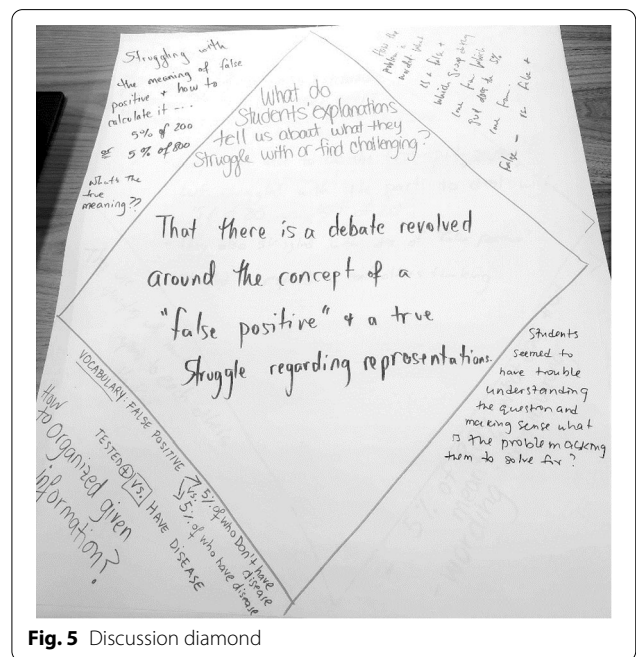 Struggling with
the meaning of false
positive + how to
calculate it ---
5% of 200
or 5% of 800
What's the
true
meaning??
What do
Students' explanations
tell us about what they
Struggle with or find challenging?
How the
problem is
worded. What
is a false +
which group did they
come from. Which
group does the 5%
come from.
False - or false +
That there is a debate revolved
around the concept of a
"false positive" + a true
struggle regarding representations.
Students
seemed to
have trouble
understanding
the question and
making sense what
is the problem asking
them to solve for?
VOCABULARY: FALSE POSITIVE
5% of who Don't have
disease
vs.
5% of who have disease
TESTED + VS. HAVE DISEASE
How
to Organized given
information?
5% of
wording
Fig. 5 Discussion diamond